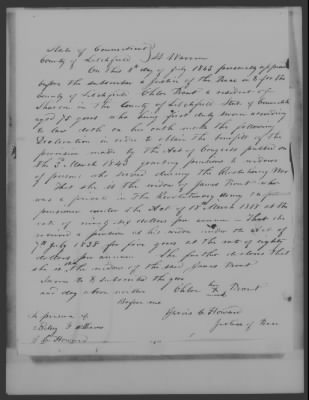 State of Connecticut
County of Litchfield } ss Warren
On this 8th day of July 1843 personally appeared
before the subscriber a Justice of the Peace in & for the
County of Litchfield Chloe Trout a resident of
Sharon in the County of Litchfield State of Connecticut
aged 78 years who being first duly sworn according
to law doth on her oath make the following
Declaration in order to obtain the benefit of the
provision made by the Act of Congress passed on
the 3d March 1843 granting pensions to widows
of persons who served during the Revolutionary War
That she is the widow of James Trout who
was a private in the Revolutionary Army
pensioner under the Act of 18th March 1818 at the
rate of ninety six dollars per annum - That she
received a pension as his widow under an Act of
7th July 1838 for five years at the rate of eighty
dollars per annum She further declares that
she is the widow of the said James Trout
Sworn to & subscribed the year
and day above written Chloe her X mark Trout
Before me
In presence of
Howard
Howard Justice of Peace